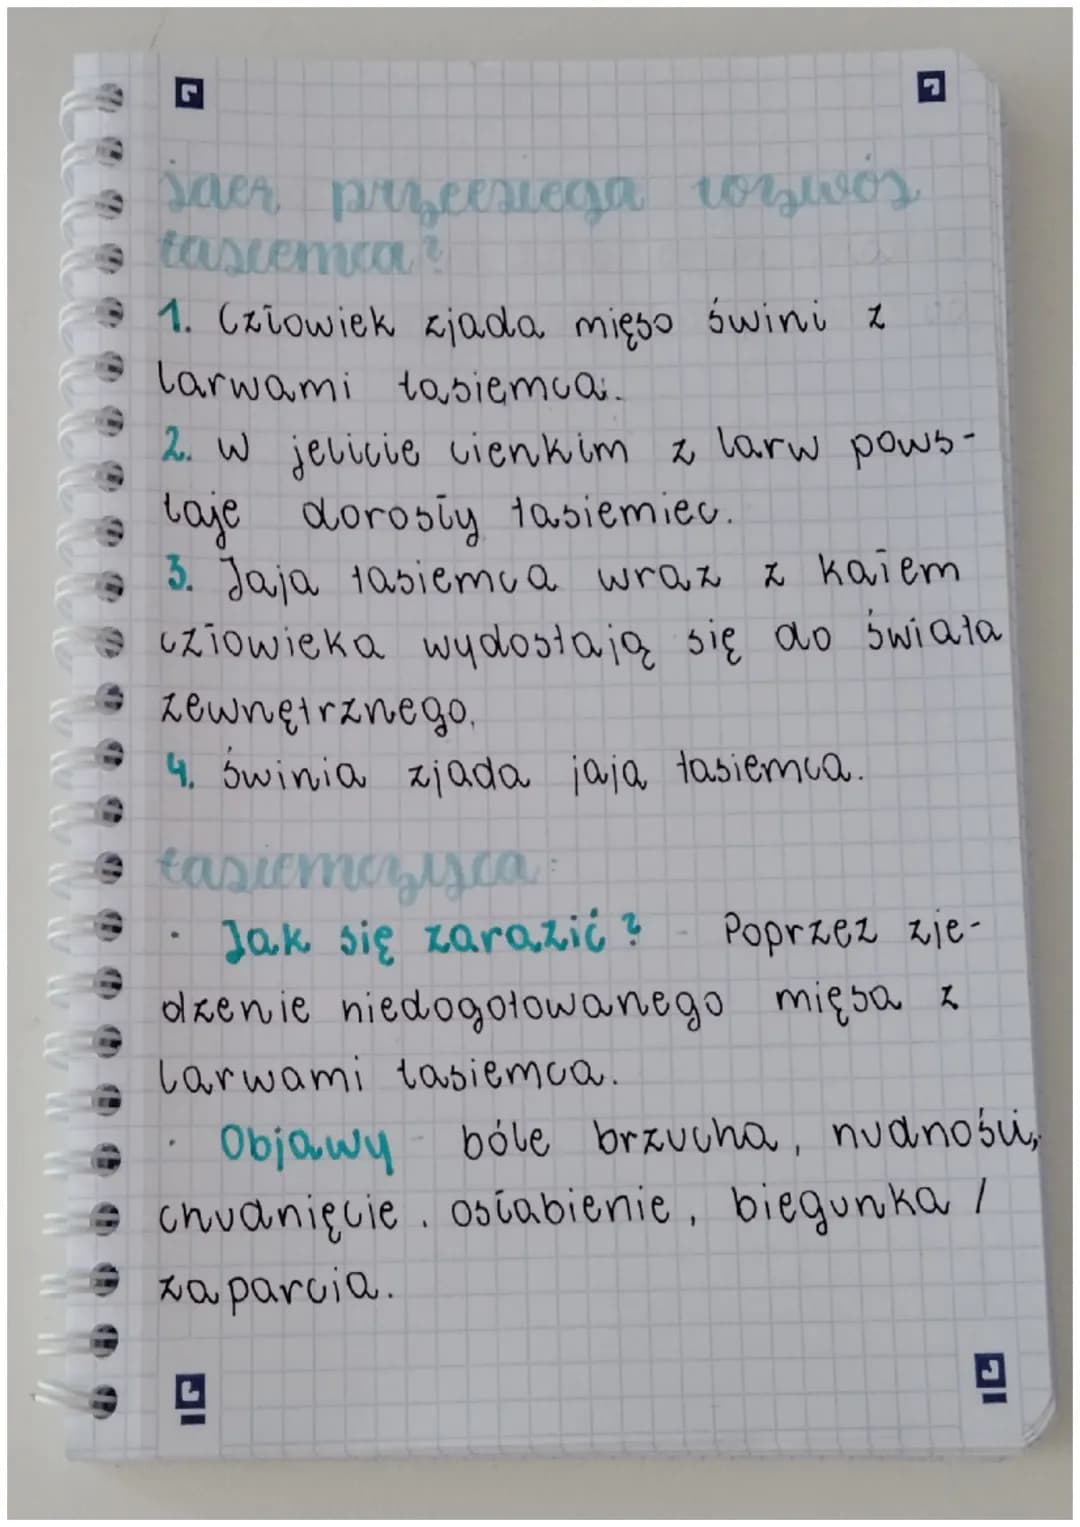 Jak przebiega rozwój
tasiemca?
1. Człowiek zjada mięso świni z
larwami tasiemca.
2. W jelicie cienkim z larw pows-
taje dorosły tasiemiec.
3. Jaja tasiemca wraz z kałem
człowieka wydostają się do świata
zewnętrznego.
4. Świnia zjada jaja tasiemca.
tasiemczyca:
· Jak się zarazić? - Poprzez zje-
dzenie niedogotowanego mięsa z
larwami tasiemca.
· Objawy - bóle brzucha, nudności,
chudnięcie, osłabienie, biegunka /
zaparcia.